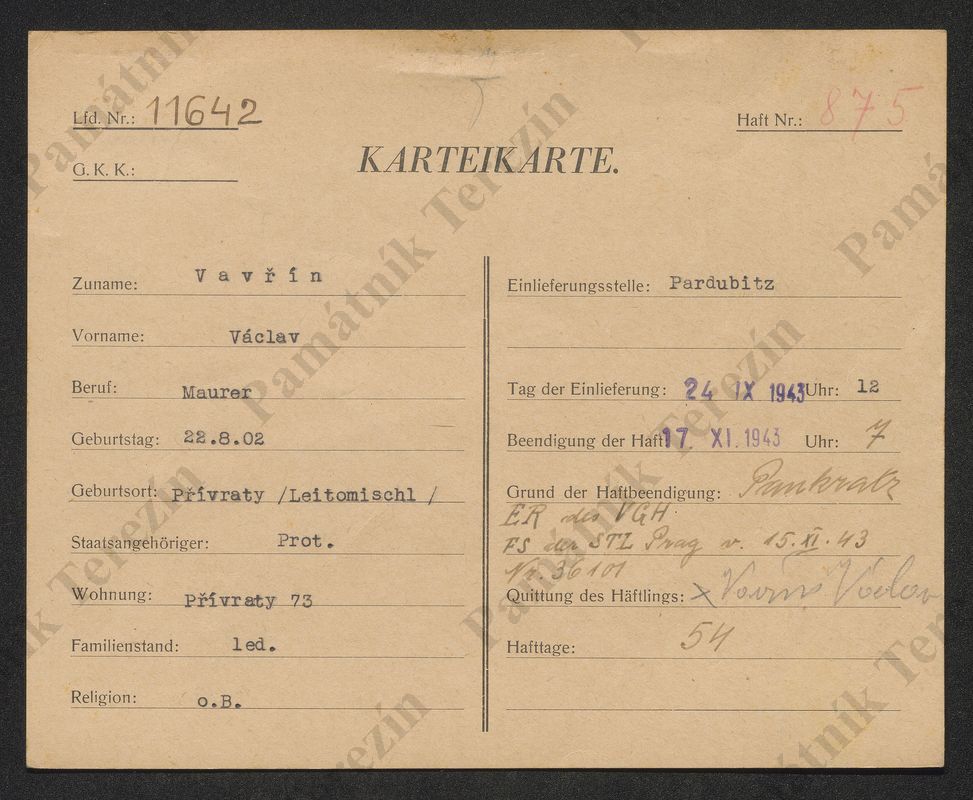 Lfd. Nr.: 11642
Haft Nr.: 875
G. K. K.:
KARTEIKARTE.
Zuname: Vavřín
Vorname: Václav
Beruf: Maurer
Geburtstag: 22.8.02
Geburtsort: Přívraty /Leitomischl /
Staatsangehöriger: Prot.
Wohnung: Přívraty 73
Familienstand: led.
Religion: o.B.
Einlieferungsstelle: Pardubitz
Tag der Einlieferung: 24 IX 1943 Uhr: 12
Beendigung der Haft: 17 XI. 1943 Uhr: 7
Grund der Haftbeendigung: Pankratz
ER des VGH
FS der STL Prag v. 15. XI. 43
Nr. 36101
Quittung des Häftlings: x
Hafttage: 54
Památník Terezín
Památník Terezín
Památník Terezín
Památník Terezín
Památník Terezín